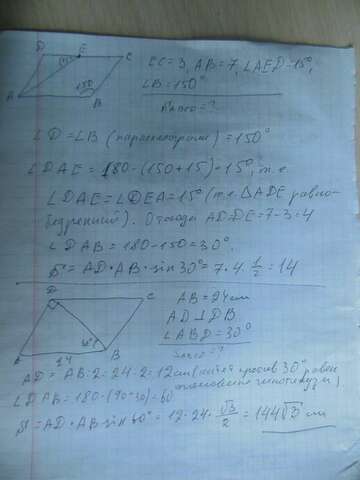 D E C
15
150
A B
EC = 3, AB = 7, ∠AED = 15°,
∠B = 150°
∠D = ∠B (параллелограмм) = 150°
∠DAE = 180-(150+15) = 15°, т.е
∠DAE = ∠DEA = 15° (т.е. ΔADE равно-
бедренный). Отсюда AD=DE = 7-3 = 4
∠DAB = 180-150 = 30°.
S = AD·AB·sin30° = 7·4·1/2 = 14
D C
30°
A B
24
AB = 24 см
AD ⊥ DB
∠ABD = 30°
AD = AB:2 = 24:2 = 12 см (катет против 30° равен
половине гипотенузы)
∠DAB = 180-(90+30) = 60°
S = AD·AB·sin60° = 12·24·√3/2 = 144√3 см